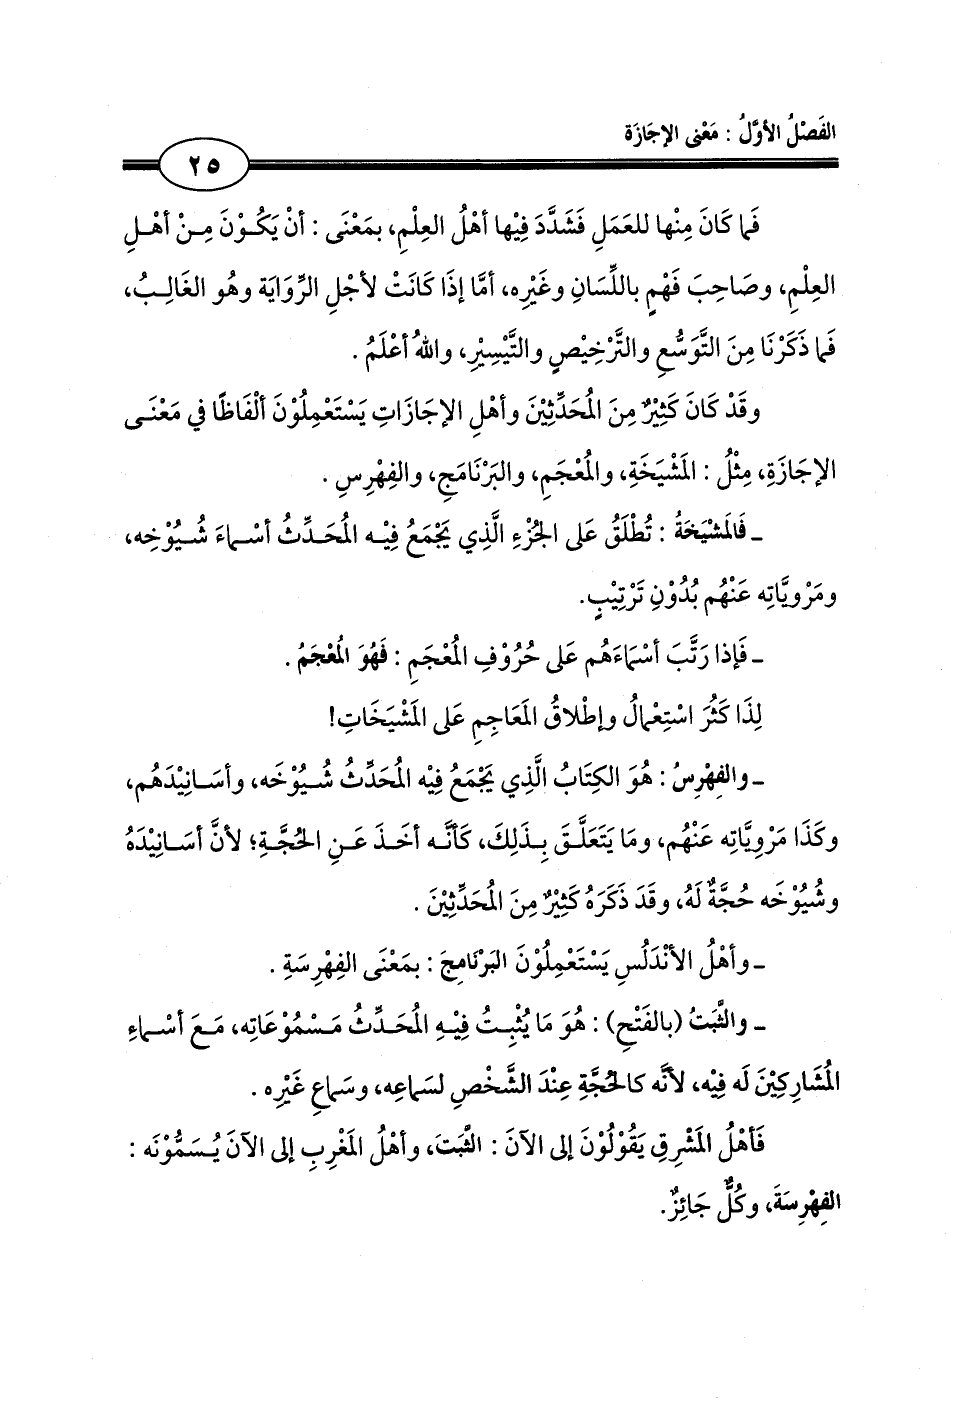 الفَصْلُ الأوَّلُ : مَعْنى الإجَازَة
٢٥
فَما كَانَ مِنْها للعَمَلِ فَشَدَّدَ فِيْها أهْلُ العِلْمِ، بمَعْنَى : أنْ يَكُوْنَ مِنْ أهْلِ
العِلْمِ، وصَاحِبَ فَهْمٍ باللِّسَانِ وغَيْرِه، أمَّا إذَا كَانَتْ لأجْلِ الرِّوَايَة وهُو الغَالِبُ،
فَما ذَكَرْنَا مِنَ التَّوَسُّعِ والتَّرْخِيْصِ والتَّيْسِيْرِ، واللهُ أعْلَمُ .
وقَدْ كَانَ كَثِيْرٌ مِنَ المُحَدِّثِيْنَ وأهْلِ الإجَازَاتِ يَسْتَعْمِلُوْنَ ألْفَاظًا في مَعْنَى
الإجَازَةِ، مِثْلُ : المَشْيَخَةِ، والمُعْجَمِ، والبَرْنَامَجِ، والفِهْرِسِ .
ـ فَالمَشْيَخَةُ : تُطْلَقُ عَلى الجُزْءِ الَّذِي يَجْمَعُ فِيْه المُحَدِّثُ أسْماءَ شُيُوْخِه،
ومَرْويَّاتِه عَنْهُم بُدُوْنِ تَرْتِيْبٍ.
ـ فَإذا رَتَّبَ أسْمَاءَهُم عَلى حُرُوْفِ المُعْجَمِ : فَهُوَ المُعْجَمُ .
لِذَا كَثُرَ اسْتِعْمالُ وإطْلاقُ المَعَاجِمِ عَلى المَشْيَخَاتِ!
ـ والفِهْرِسُ : هُوَ الكِتَابُ الَّذِي يَجْمَعُ فِيْه المُحَدِّثُ شُيُوْخَه، وأسَانِيْدَهُم،
وكَذَا مَرْويَّاتِه عَنْهُم، ومَا يَتَعَلَّقَ بِذَلِكَ، كَأنَّه أخَذَ عَنِ الحُجَّةِ؛ لأنَّ أسَانِيْدَهُ
وشُيُوْخَه حُجَّةٌ لَهُ، وقَدَ ذَكَرَهُ كَثِيْرٌ مِنَ المُحَدِّثِيْنَ .
ـ وأهْلُ الأنْدَلُسِ يَسْتَعْمِلُوْنَ البَرْنَامِجَ : بمَعْنَى الفِهْرِسَةِ .
ـ والثَّبَتُ (بالفَتْحِ) : هُوَ مَا يُثْبِتُ فِيْهِ المُحَدِّثُ مَسْمُوْعَاتِه، مَعَ أسْماءِ
المُشَارِكِيْنَ لَه فِيْه، لأنَّه كالحُجَّةِ عِنْدَ الشَّخْصِ لسَماعِه، وسَماعِ غَيْرِه .
فَأهْلُ المَشْرِقِ يَقُوْلُوْنَ إلى الآنَ : الثَّبَتَ، وأهْلُ المَغْرِبِ إلى الآنَ يُسَمُّوْنَه :
الفِهْرِسَةَ، وكُلٌّ جَائِزٌ.